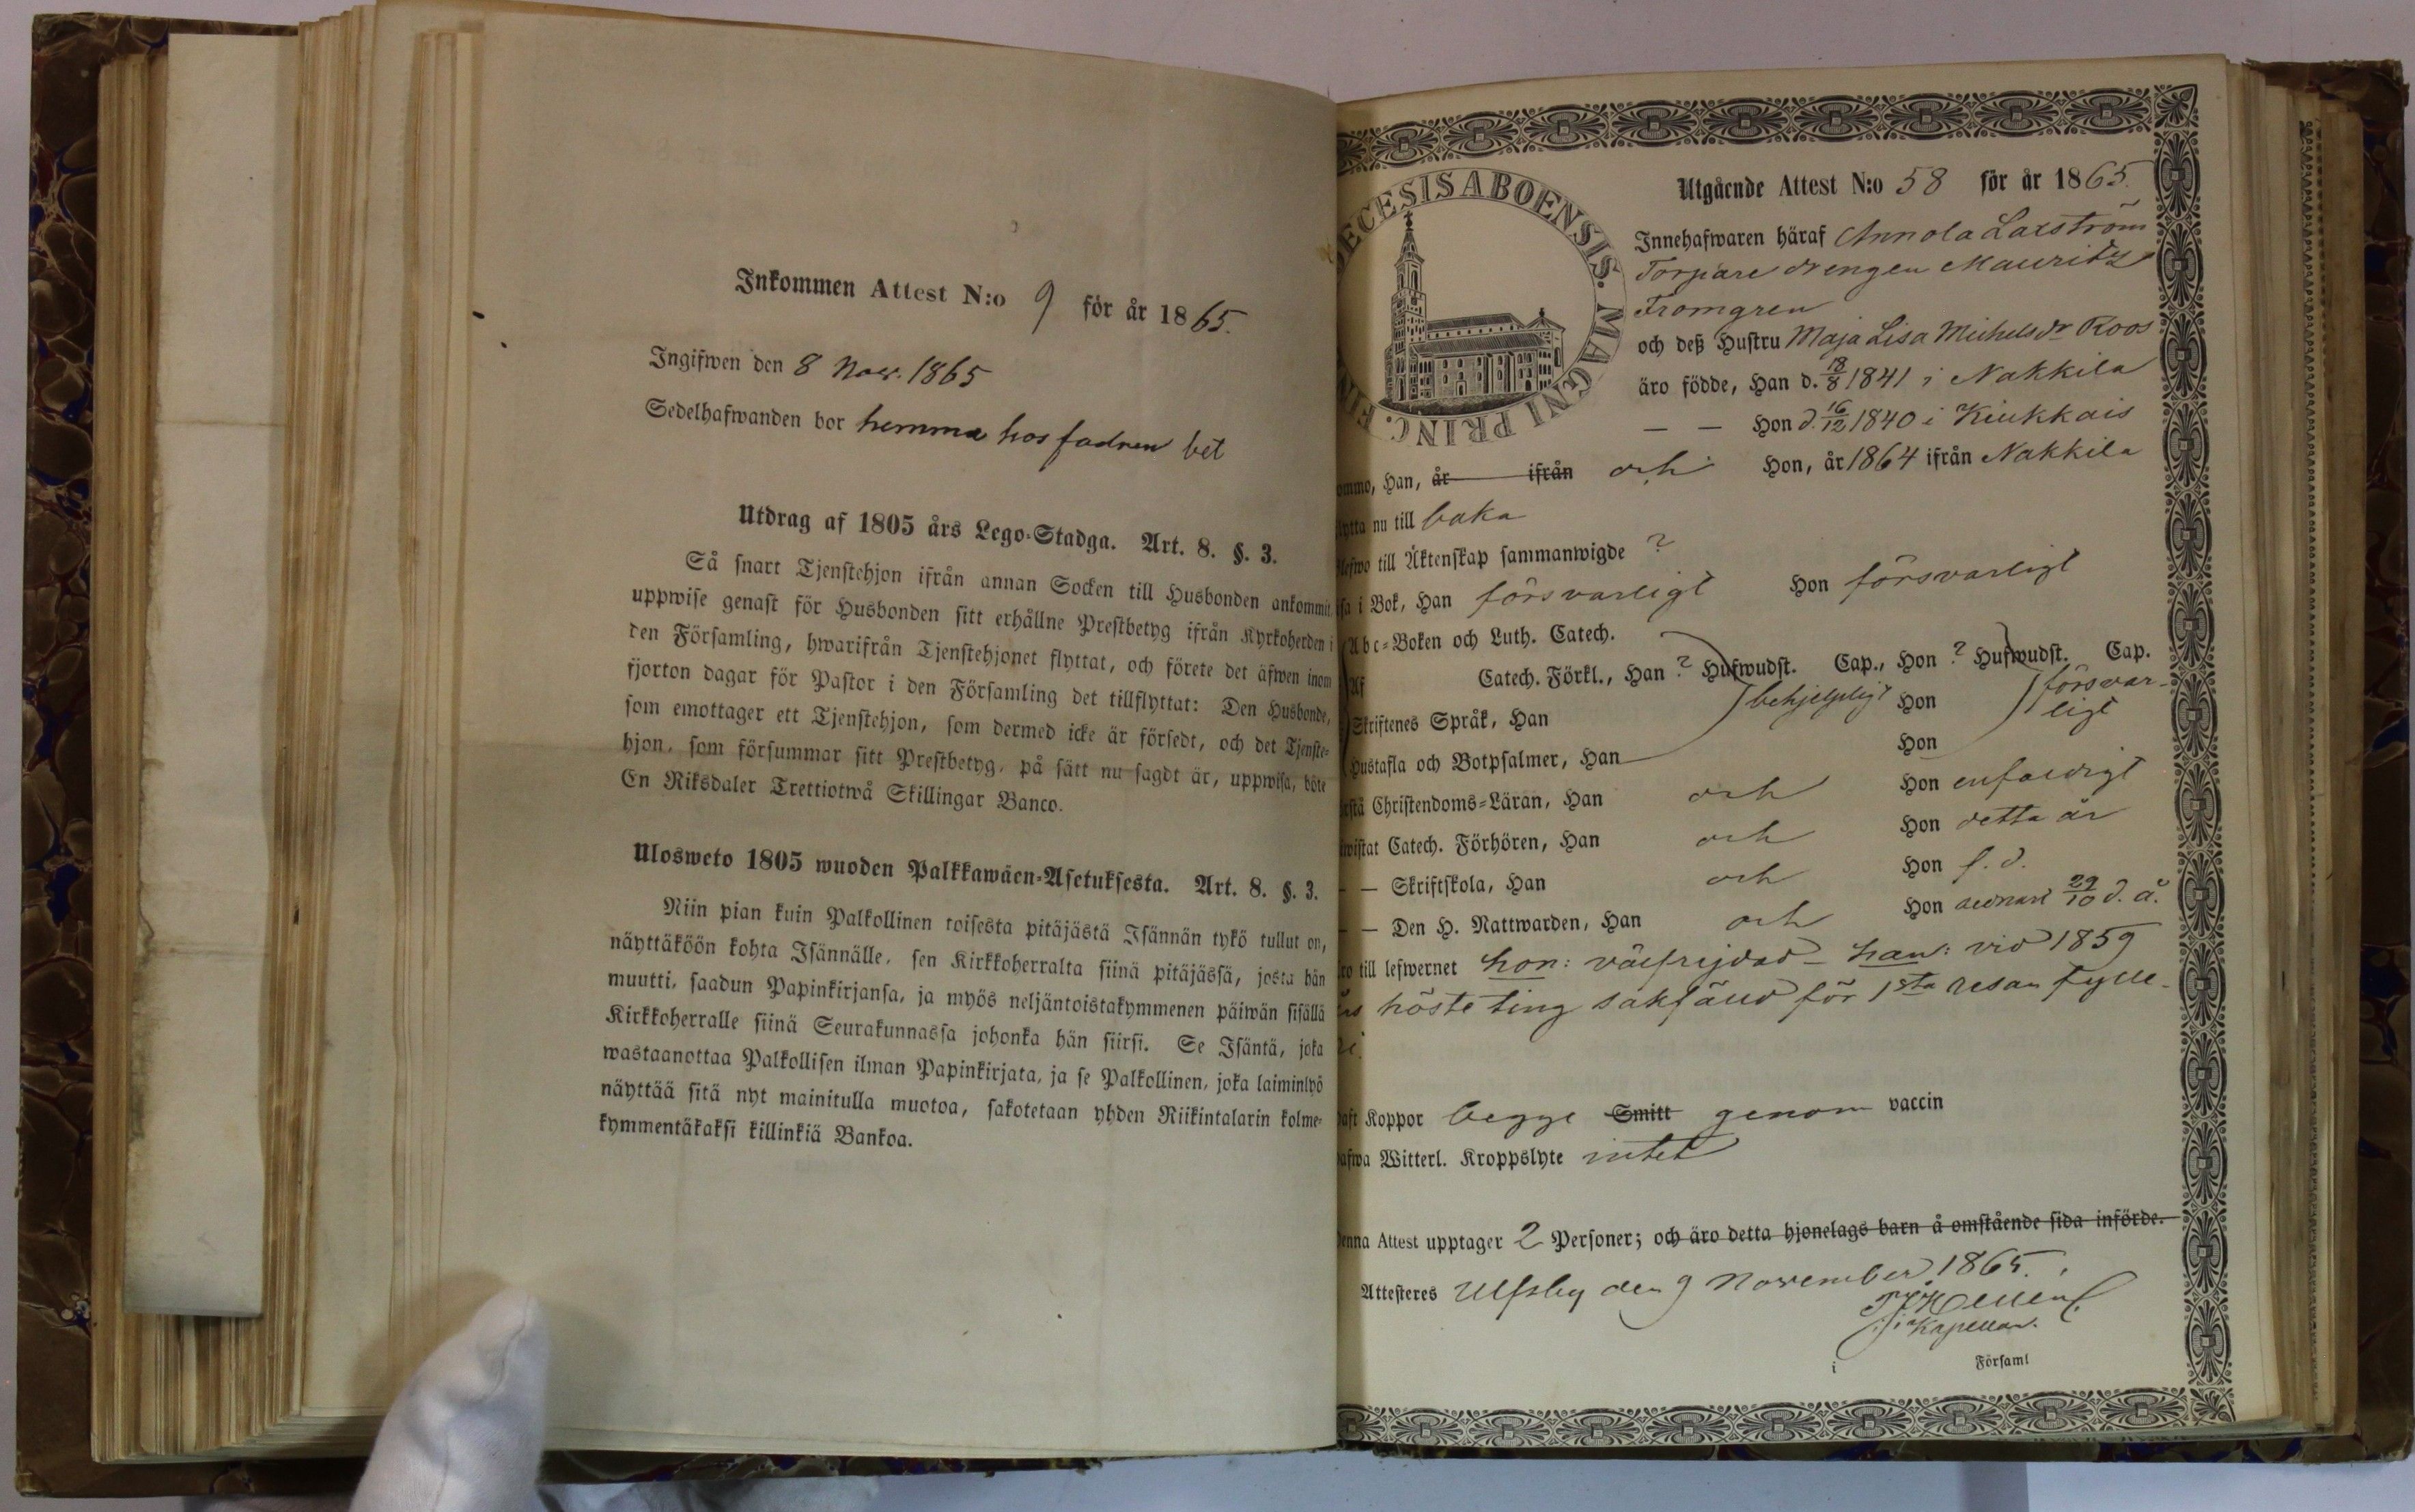 Inkommen Attest N:o 9 för år 1865.
Ingifwen den 8 Nov. 1865
Sedelhafwanden bor hemma hos fadren
Utdrag af 1805 års Lego-Stadga. Art. 8. §. 3.
Så snart Tjenstehjon ifrån annan Socken till Husbonden ankommit
uppwise genast för Husbonden sitt erhållne Prestbetyg ifrån Kyrkoherden i
den Församling, hwarifrån Tjenstehjonet flyttat, och förete det äfwen inom
fjorton dagar för Pastor i den Församling det tillflyttat: Den Husbonde,
som emottager ett Tjenstehjon, som dermed icke är försedt, och det Tjenste-
hjon, som försummar sitt Prestbetyg, på sätt nu sagdt är, uppwisa, böte
En Riksdaler Trettiotwå Skillingar Banco.
Ulosweto 1805 wuoden Palkkawäen-Asetuksesta. Art. 8. §. 3.
Niin pian kuin Palkollinen toisesta pitäjästä Isännän tykö tullut on,
näyttäköön kohta Isännälle, sen Kirkkoherralta siinä pitäjässä, josta hän
muutti, saadun Papinkirjansa, ja myös neljäntoistakymmenen päiwän sisällä
Kirkkoherralle siinä Seurakunnassa johonka hän siirsi. Se Isäntä, joka
wastaanottaa Palkollisen ilman Papinkirjata, ja se Palkollinen, joka laiminlyö
näyttää sitä nyt mainitulla muotoa, sakotetaan yhden Riikintalarin kolme-
kymmentäkaksi killinkiä Bankoa.
ECESIS ABOENSIS. MAGNI PRINC. FIN
Utgående Attest N:o 58 för år 1865.
Innehafwaren häraf Annola Laxström
Torpare drengen Mauritz
Fromgren
och deß Hustru Maja Lisa Michelsdr Roos
äro födde, Han d. 18/8 1841 i Nakkila
— — Hon d. 16/12 1840 i Kiukkais
ommo, Han, år ifrån och Hon, år 1864 ifrån Nakkila
lytta nu till baka
lefwo till Äktenskap sammanwigde ?
sa i Bok, Han försvarligt Hon försvarligt
Abc-Boken och Luth. Catech.
Af Catech. Förkl., Han ? Hufwudst. Cap., Hon ? Hufwudst. Cap.
Skriftenes Språk, Han behjelpligt Hon försvar-
ligt
Hustafla och Botpsalmer, Han Hon
rstå Christendoms-Läran, Han och Hon enfaldigt
wistat Catech. Förhören, Han och Hon detta år
— — Skriftskola, Han och Hon f. d.
— — Den H. Nattwarden, Han och Hon sednast 29/10 d. å.
ro till lefwernet hon: välfrejdad - han: vid 1859
års höste ting sakfälld för 1sta resan fylle-
ri.
haft Koppor begge Smitt genom vaccin
hafwa Witterl. Kroppslyte intet
Denna Attest upptager 2 Personer; och äro detta hjonelags barn å omstående sida införde.
Attesteres Ulfsby den 9 November 1865.
Kapellan.
i Församl